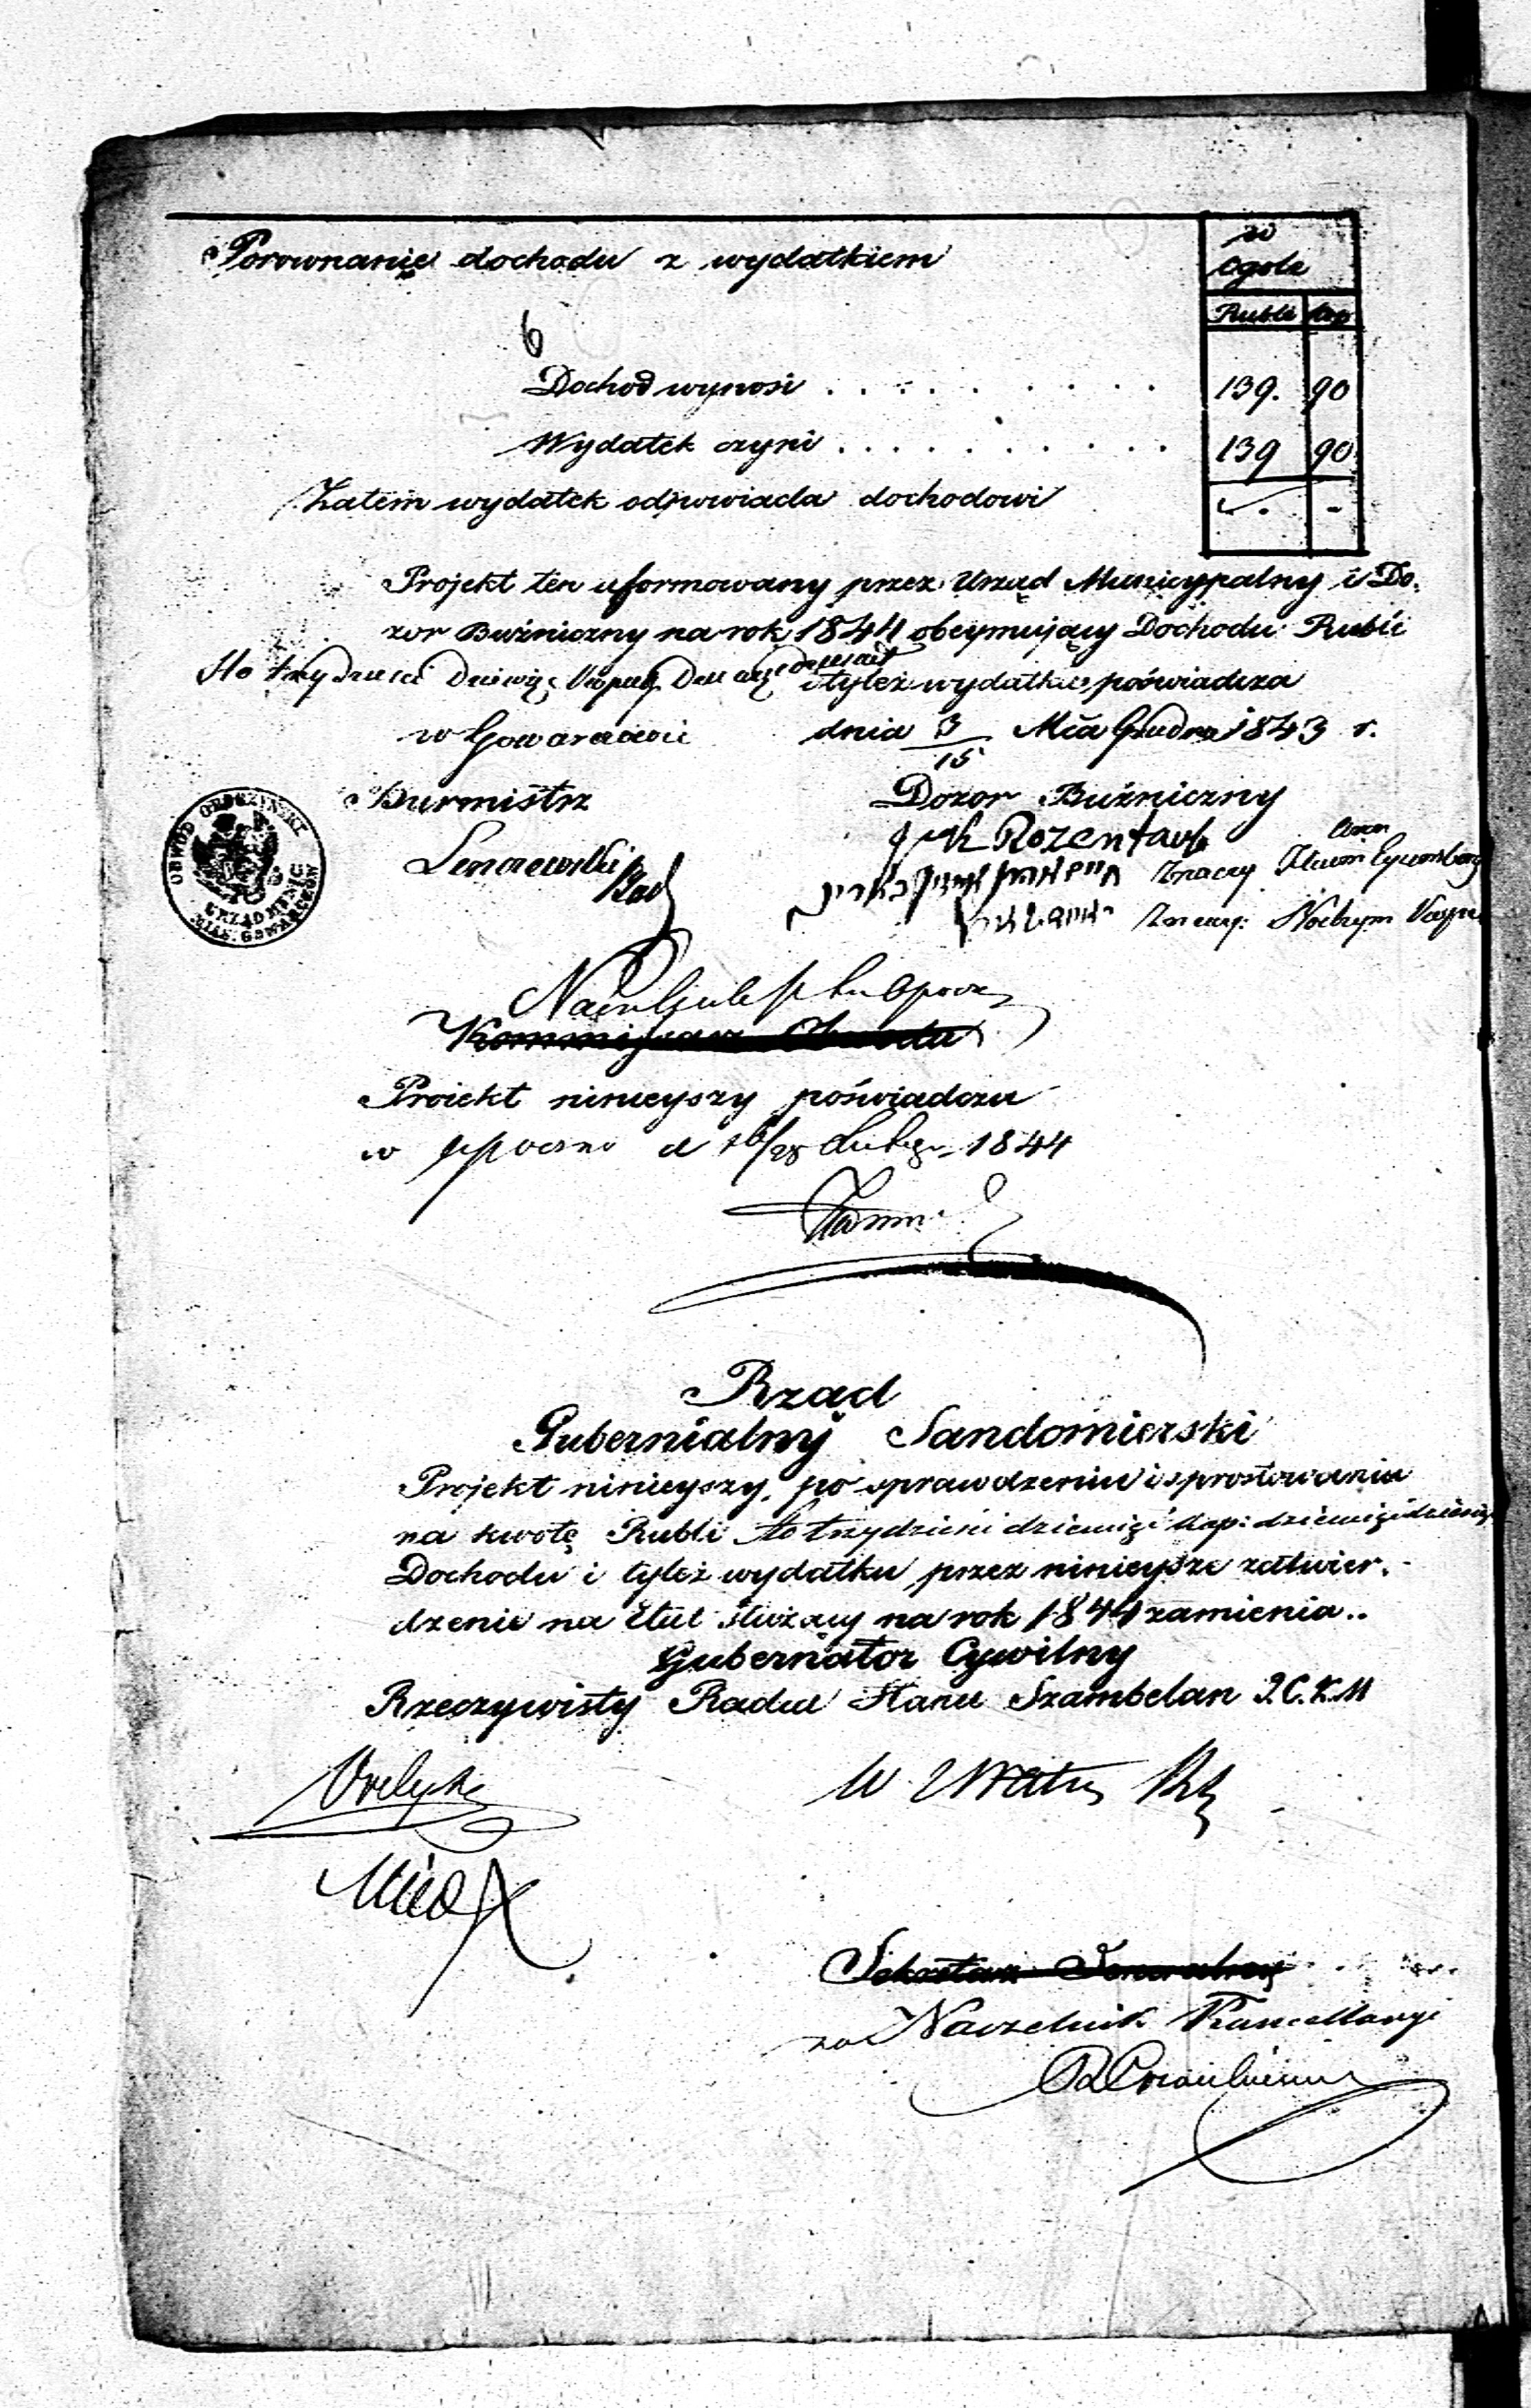 Porownanie dochodu z wydatkiem
w
ogole
Rubli kop
6
Dochod wynosi . . . . . . . . . . 139. 90
Wydatek czyni . . . . . . . . . . 139 90
Zatem wydatek odpowiada dochodowi - . -
Projekt ten uformowany przez Urząd Municypalny i Do-
zor Bużniczny na rok 1844 obeymujący Dochodu Rubli
Sto trzydzieści Dziewięć Kopiek Dziewięćdziesiąt i tyleż wydatku poświadcza
w Gowarczowie dnia 3/15 Mca Grudnia 1843 r.
Burmistrz Dozor Bużniczny
OBWÓD OPOCZYŃSKI
URZĄD MUNIC:
MIAS. GOWARCZÓW
Rozentaub
Znaczy
Znaczy:
Naczelnik Ptu Opocz
Kommissarz Obwodu
Proiekt ninieyszy poświadcza
w Opocznie d 16/28 Lutego 1844
Rząd
Gubernialny Sandomierski
Projekt ninieyszy, po sprawdzeniu i sprostowaniu
na kwotę Rubli sto trzydzieści dziewięć kop: dziewięćdziesiąt
Dochodu i tyleż wydatku przez ninieysze zatwier-
dzenie na Etat służący na rok 1844 zamienia..
Gubernator Cywilny
Rzeczywisty Radca Stanu Szambelan J.C.K.M
Sekretarz Jeneralny
za Naczelnik Kancellaryi